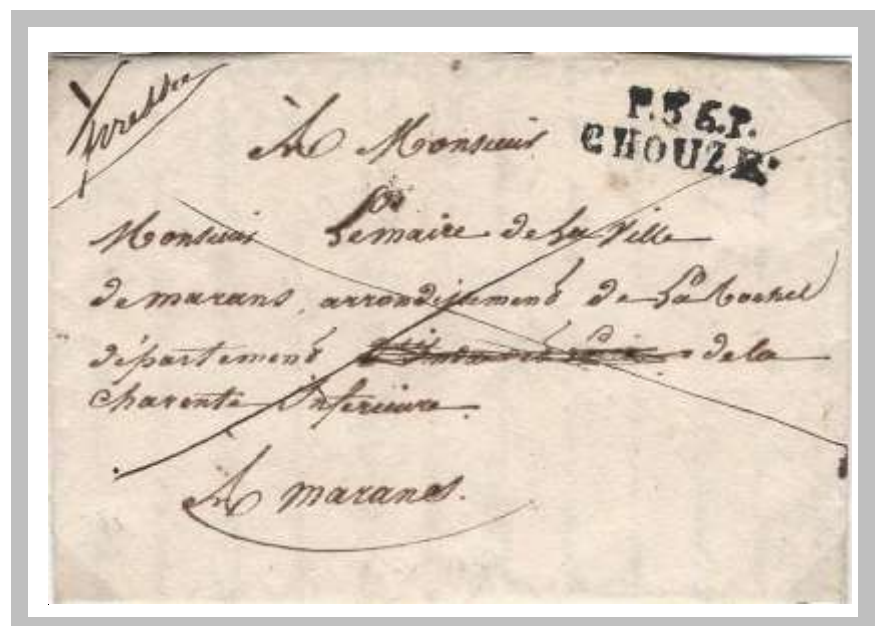 P.36.P.
CHOUZÉ
A Monsieur
Monsieur Le maire de La Ville
de marans, arrondissement de La Rochel
département de la
charente inferieure
A marans.